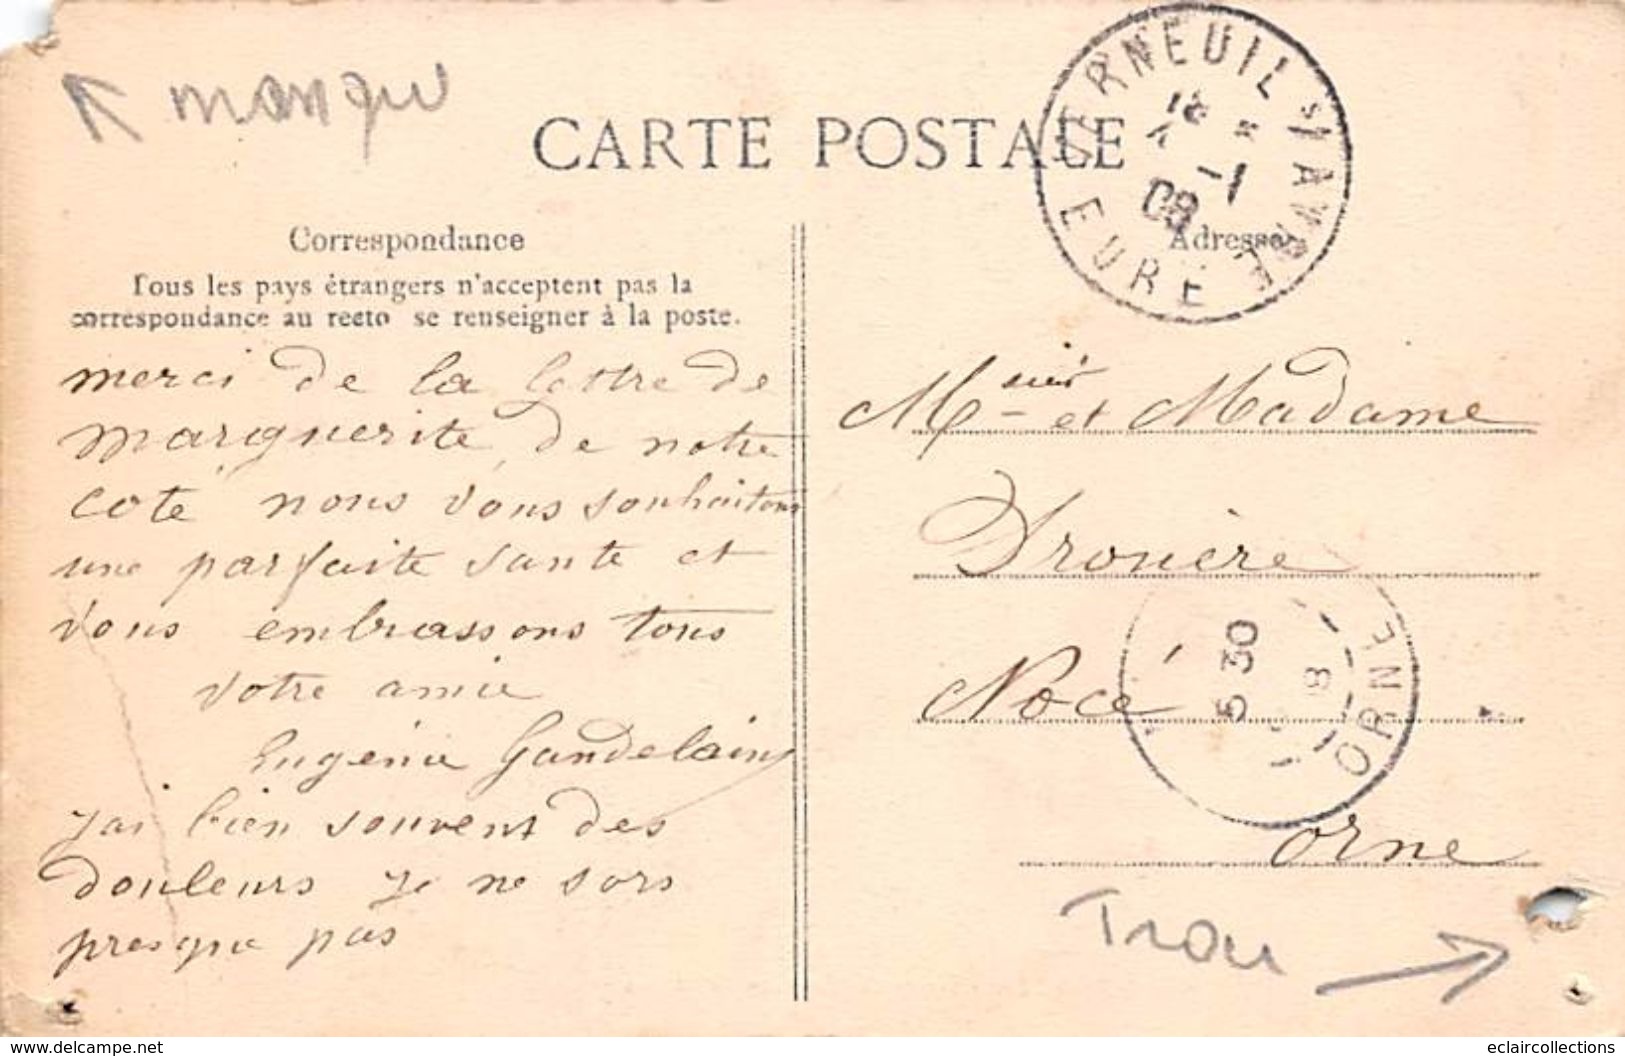 manque
CARTE POSTALE
VERNEUIL S/ AVRE
18
4 - 1
08
EURE
Correspondance
Tous les pays étrangers n'acceptent pas la
correspondance au recto se renseigner à la poste.
merci de la lettre de
marguerite, de notre
coté nous vous souhaitons
une parfaite sante et
vous embrassons tous
votre amie
Eugénie Gandelain
j'ai bien souvent des
douleurs je ne sors
presque pas
Adresse
Msieur et Madame
Drouère
Nocé
Orne
5 30
8
ORNE
Trou
www.delcampe.net
eclaircollections